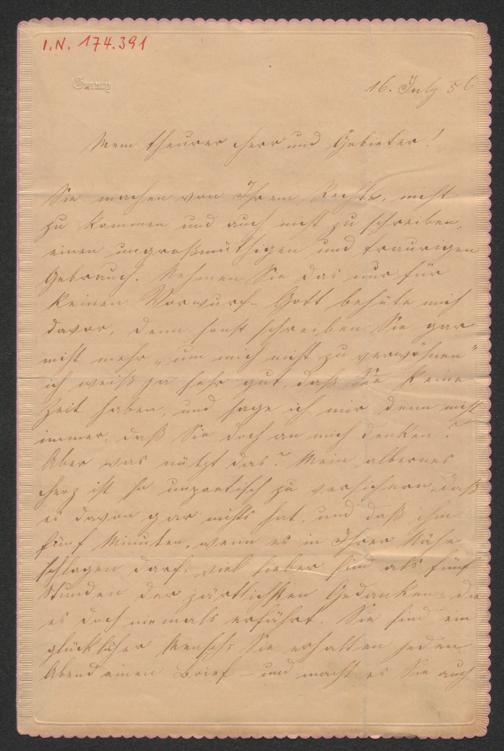 I.N. 174.391
16. July 56
Mein theurer Herr und Gebieter!
Sie machen von Ihrem Rechte, nicht
zu kommen und auch nicht zu schreiben,
einen ungroßmüthigen und traurigen
Gebrauch. Nehmen Sie das nur für
keinen Vorwurf – Gott behüte mich
davor, denn sonst schreiben Sie gar
nicht mehr „um mich nicht zu verwöhnen"
ich weiß ja sehr gut, daß Sie keine
Zeit haben, und sage ich mir denn nicht
immer, daß Sie doch an mich denken?
Aber was nützt das? Mein albernes
Herz ist so unpoetisch zu versichern, daß
es davon gar nichts hat, und daß ihm
fünf Minuten, wenn es in Ihrer Nähe
schlagen darf, viel lieber sind als fünf
Stunden der zärtlichsten Gedanken, die
es doch niemals erfährt. Sie sind ein
glücklicher Mensch: Sie erhalten jeden
Abend einen Brief – und macht es Sie auch